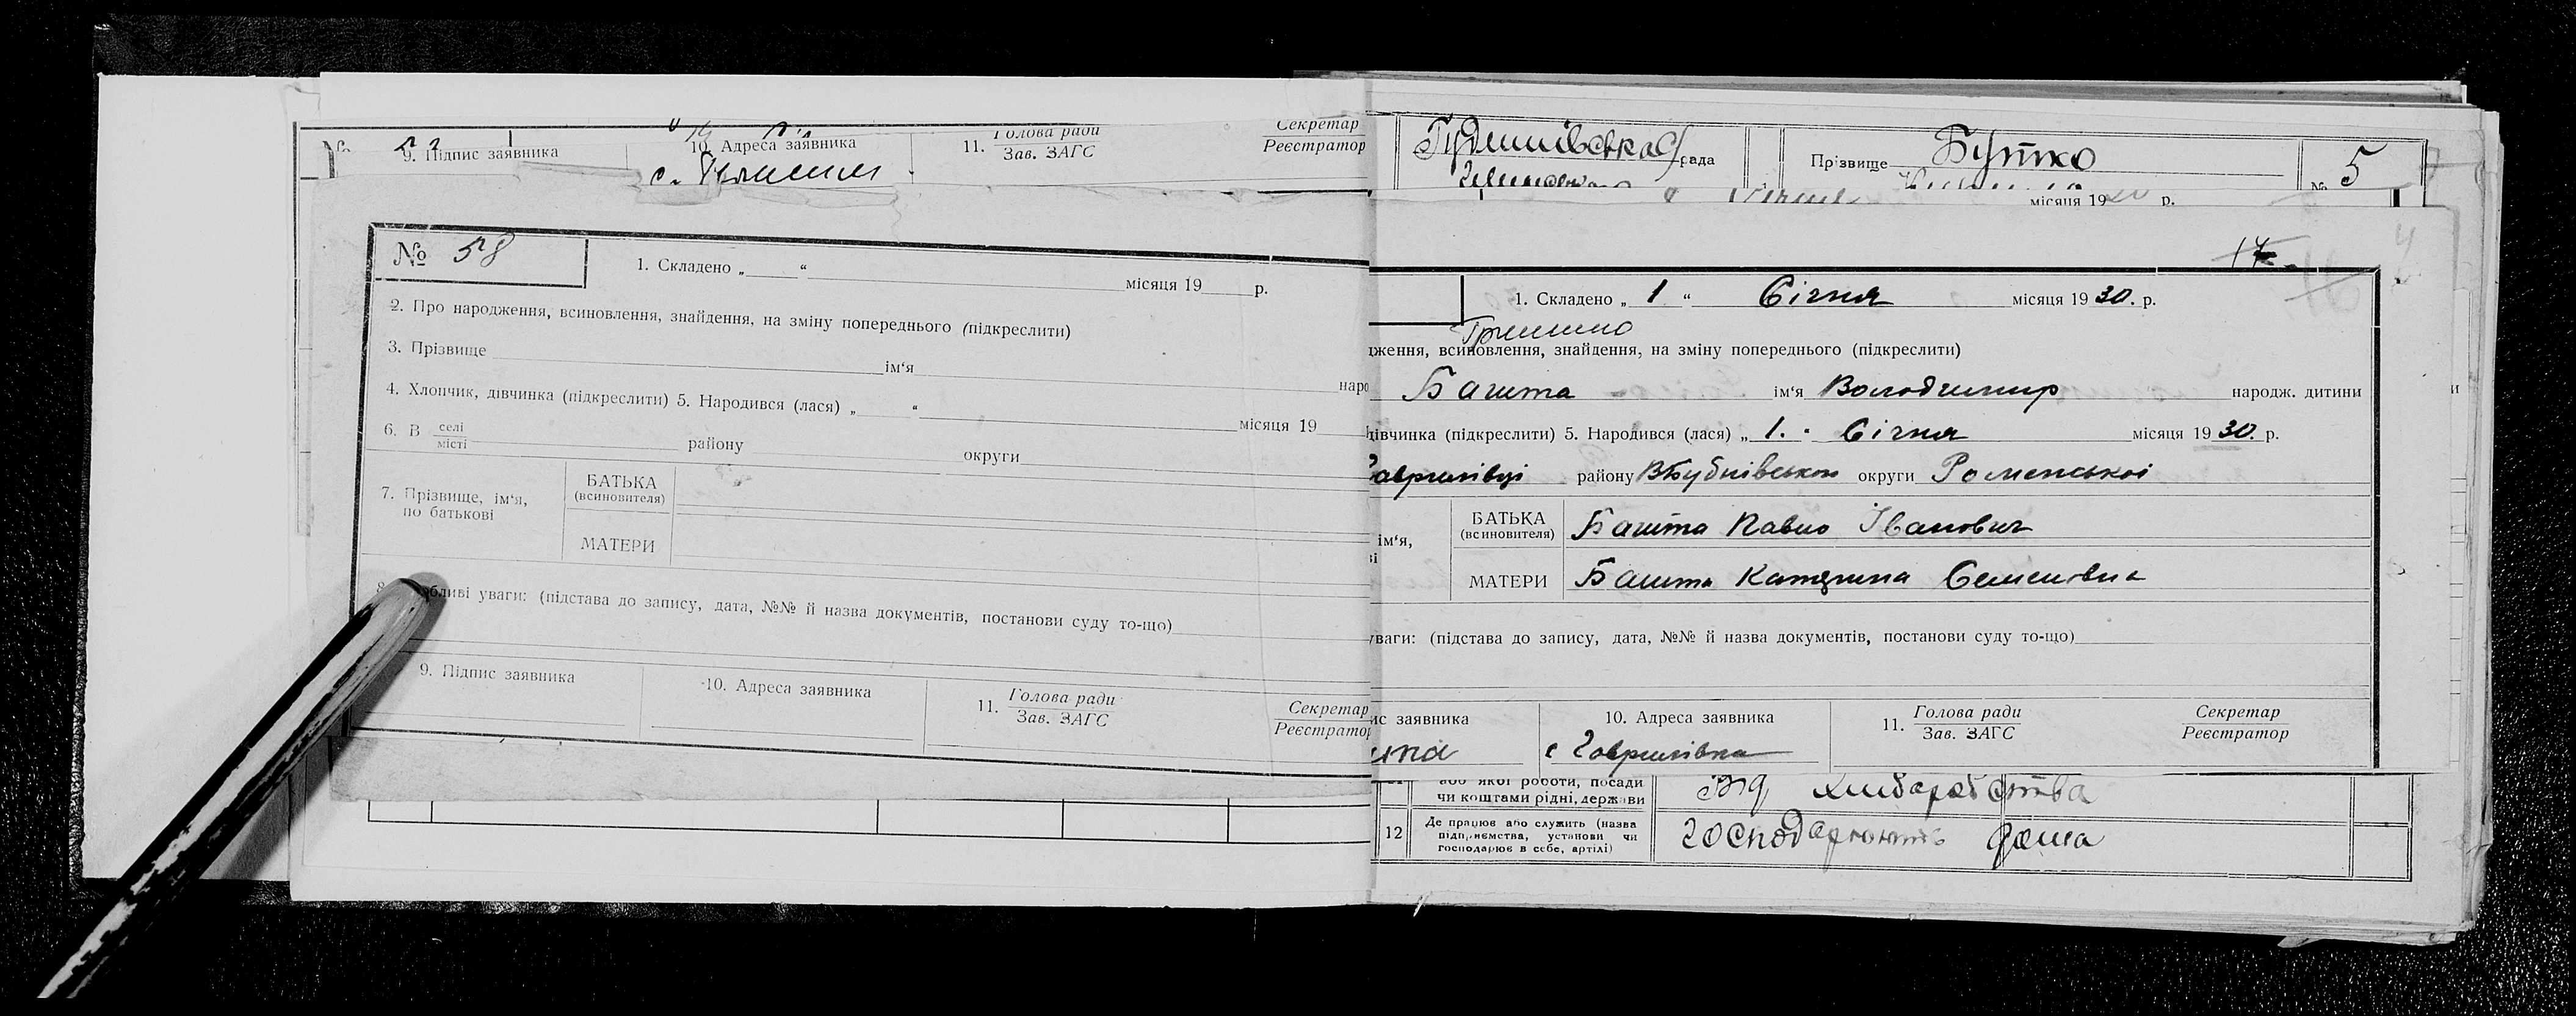 9. Підпис заявника
10. Адреса заявника
11. Голова ради
Зав. ЗАГС
Секретар
Реєстратор
с.
№ 58
1. Складено „ “ місяця 19 р.
2. Про народження, всиновлення, знайдення, на зміну попереднього (підкреслити)
3. Прізвище ім‘я наро
4. Хлопчик, дівчинка (підкреслити) 5. Народився (лася) „ “ місяця 19
6. В селі місті району округи
7. Прізвище, ім‘я, по батькові
БАТЬКА (всиновителя)
МАТЕРИ
уваги: (підстава до запису, дата, №№ й назва документів, постанови суду то-що)
9. Підпис заявника
10. Адреса заявника
11. Голова ради
Зав. ЗАГС
Секретар
Реєстратор
рада
Прізвище Бутко
№ 5
місяця 19 р.
17
1. Складено „ 1 “ Січня місяця 1930. р.
дження, всиновлення, знайдення, на зміну попереднього (підкреслити)
Башта ім‘я Володимир народж. дитини
дівчинка (підкреслити) 5. Народився (лася) „ 1. “ Січня місяця 1930. р.
аврилівці району округи Роменської
ім‘я,
БАТЬКА (всиновителя) Башта Павло Іванович
МАТЕРИ Башта Катерина Семеновна
уваги: (підстава до запису, дата, №№ й назва документів, постанови суду то-що)
ис заявника
10. Адреса заявника
с Гаврилівка
11. Голова ради
Зав. ЗАГС
Секретар
Реєстратор
або якої роботи, посади
чи коштами рідні, держави
Від хліборобства
12 Де працює або служить (назва
підприємства, установи чи
господарює в себе, артілі)
господарюють дома